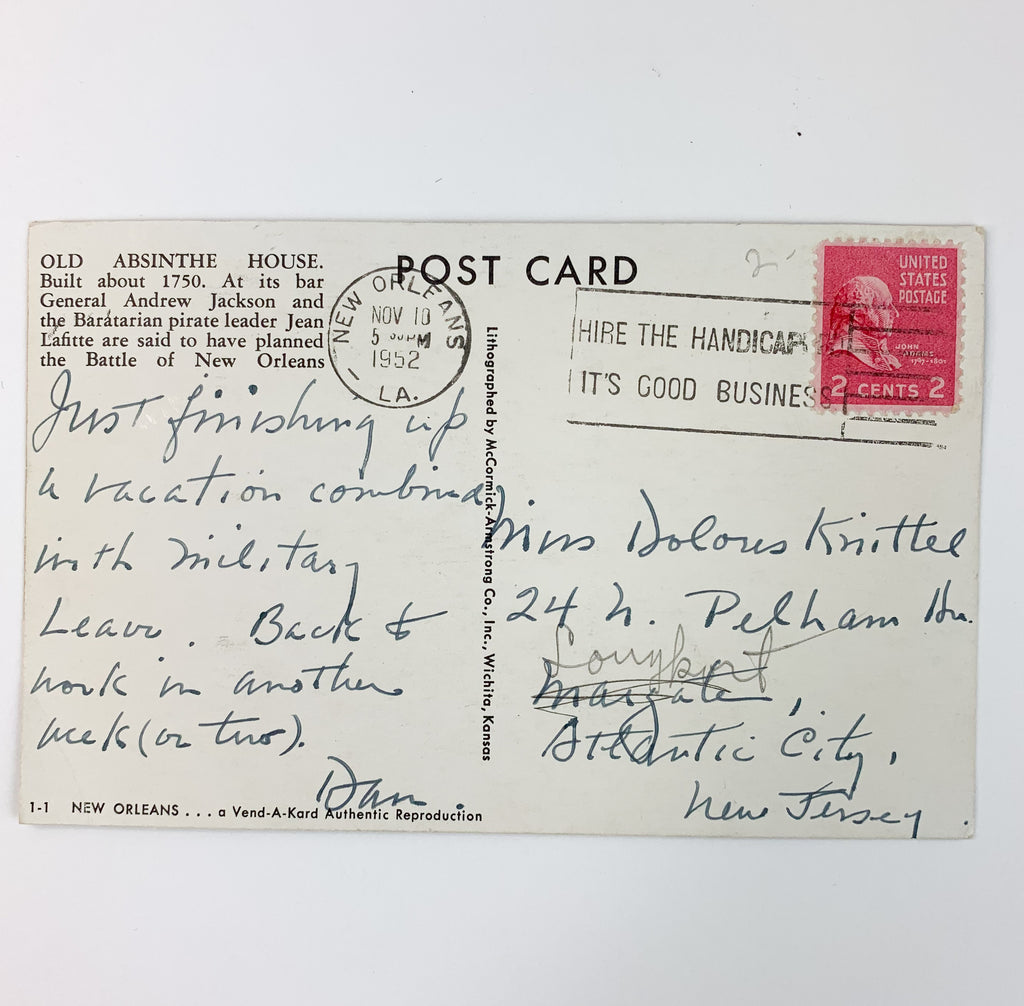 OLD ABSINTHE HOUSE.
Built about 1750. At its bar
General Andrew Jackson and
the Baratarian pirate leader Jean
Lafitte are said to have planned
the Battle of New Orleans
Just finishing up
a vacation combined
with military
Leave. Back to
work in another
week (or two).
Dan.
1-1 NEW ORLEANS . . . a Vend-A-Kard Authentic Reproduction
POST CARD
NEW ORLEANS
NOV 10
5 PM
1952
LA.
Lithographed by McCormick-Armstrong Co., Inc., Wichita, Kansas
HIRE THE HANDICAPPED
IT'S GOOD BUSINESS
2
UNITED
STATES
POSTAGE
JOHN
ADAMS
1797-1801
2 CENTS 2
Miss Dolores Knittel
24 N. Pelham Av.
Longport
Margate,
Atlantic City,
New Jersey.